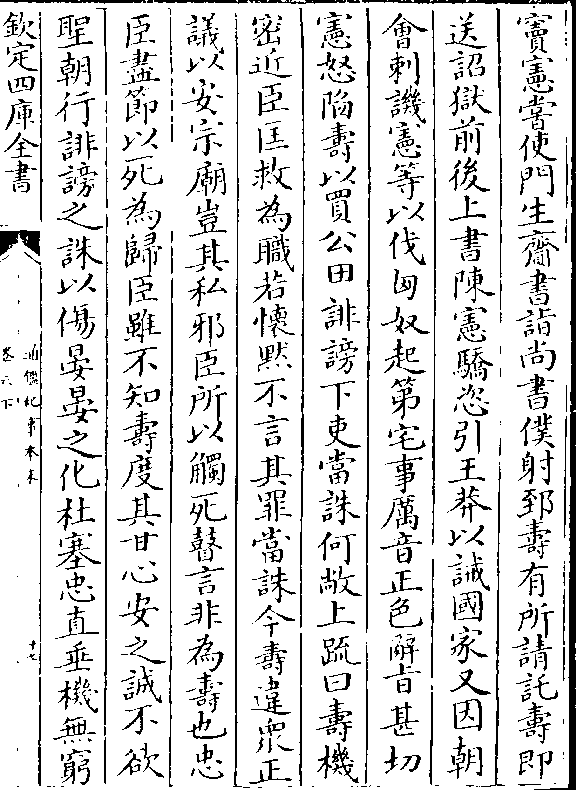 竇憲嘗使門生齎書詣尚書僕射郅壽有所請託壽即
送詔獄前後上書陳憲驕恣引王莽以誡國家又因朝
會刺譏憲等以伐匈奴起第宅事厲音正色辭旨甚切
憲怒陷壽以買公田誹謗下吏當誅何敞上疏曰壽機
密近臣匡救為職若懷黙不言其罪當誅今壽違衆正
議以安宗廟豈其私邪臣所以觸死瞽言非為壽也忠
臣盡節以死為歸臣雖不知壽度其甘心安之誠不欲
聖朝行誹謗之誅以傷晏晏之化杜塞忠直垂機無窮
欽定四庫全書
通鑑紀事本末
卷六下
十七